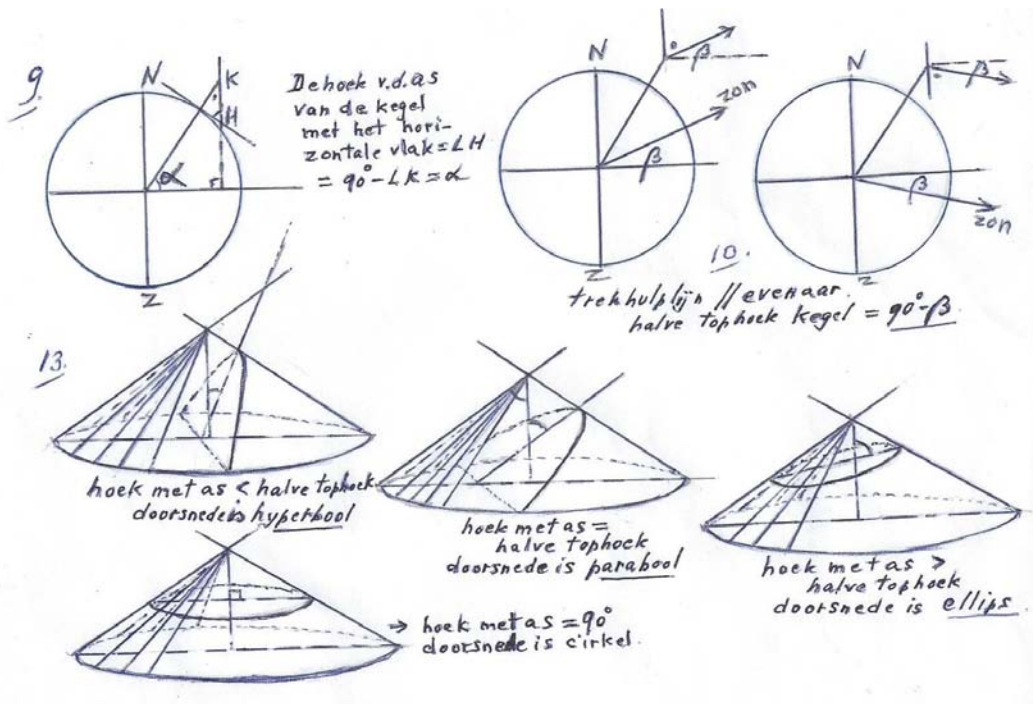 9.
N
K
H
α
Z
De hoek v.d. as
van de kegel
met het hori-
zontale vlak = ∠H
= 90° - ∠K = α
N
β
zon
β
Z
N
β
β
zon
Z
10.
trek hulplijn // evenaar.
halve tophoek kegel = 90°-β
13.
hoek met as < halve tophoek
doorsnede is hyperbool
hoek met as =
halve tophoek
doorsnede is parabool
hoek met as >
halve tophoek
doorsnede is ellips.
→ hoek met as = 90°
doorsnede is cirkel.